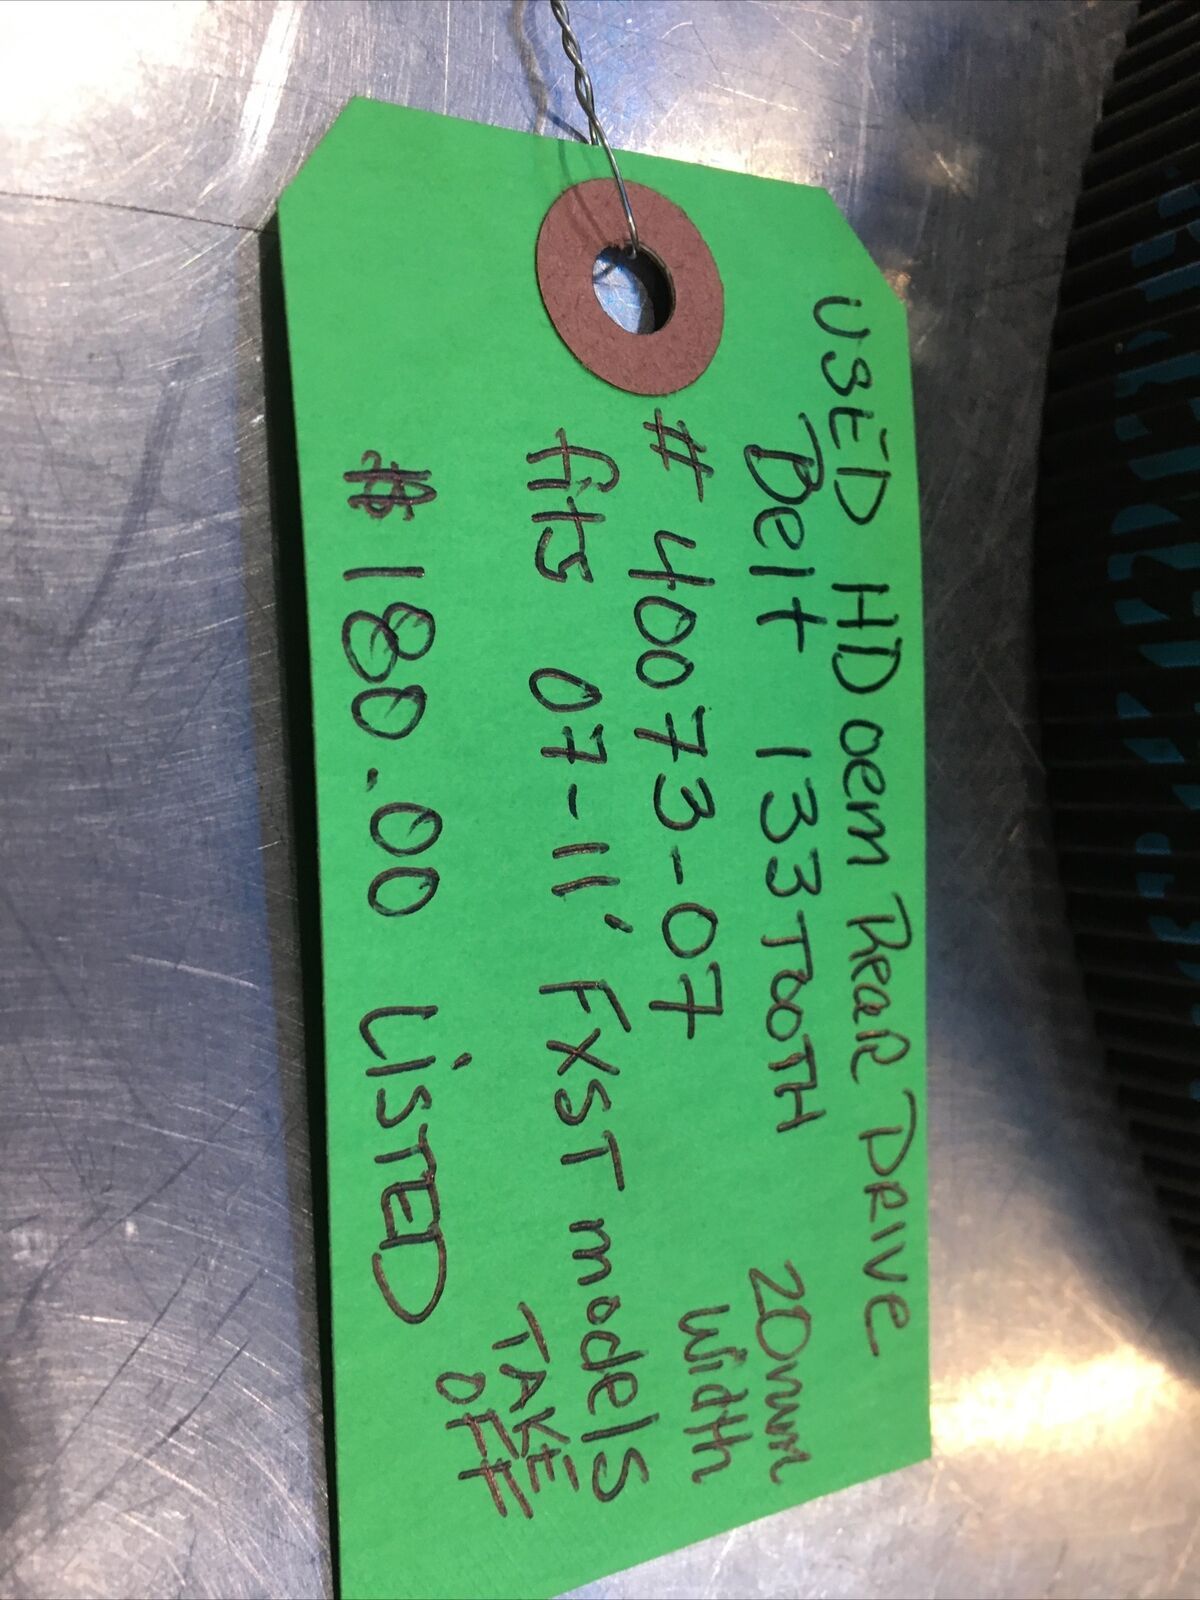 USED HD oem Rear DRIVE
Belt 133 TOOTH 20mm
# 40073-07 Width
fits 07-11' FXST models
TAKE
OFF
$180.00 LiSTED